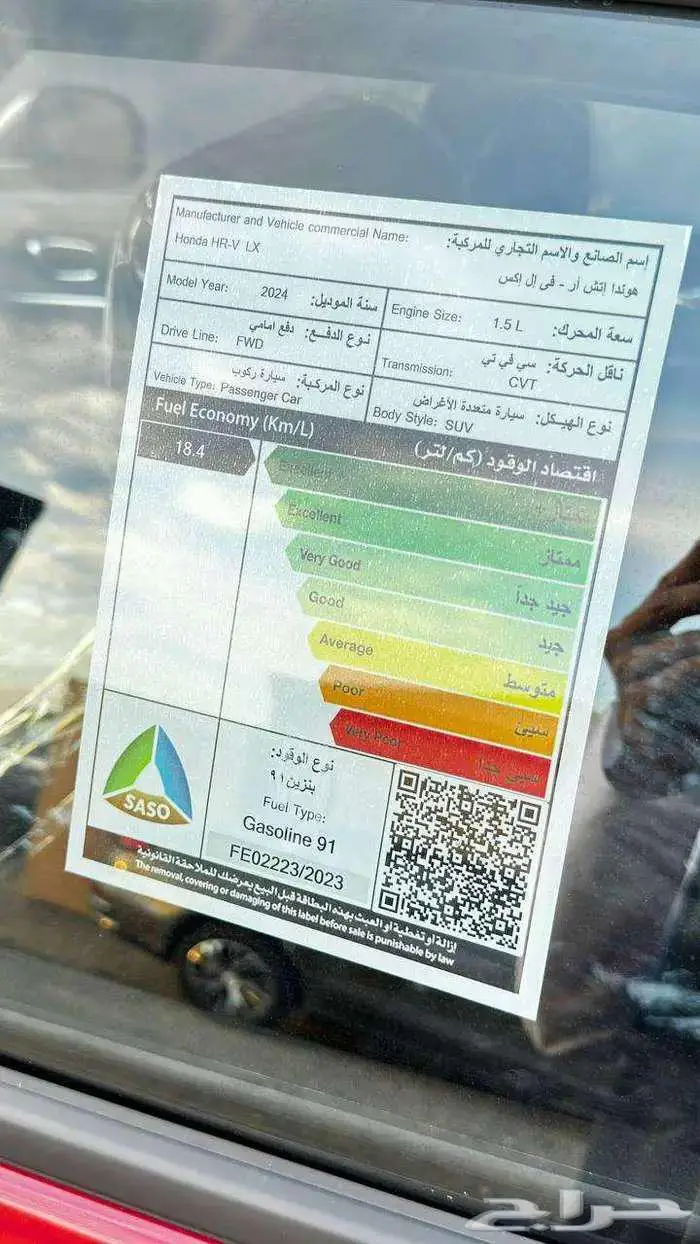 Manufacturer and Vehicle commercial Name:
إسم الصانع والاسم التجاري للمركبة:
Honda HR-V LX
هوندا إتش أر - فى إل إكس
Model Year: 2024 سنة الموديل:
Engine Size: 1.5 L سعة المحرك:
Drive Line: دفع امامي نوع الدفع:
FWD
Transmission: سي في تي ناقل الحركة:
CVT
Vehicle Type: سيارة ركوب نوع المركبة:
Passenger Car
Body Style: سيارة متعددة الأغراض نوع الهيكل:
SUV
Fuel Economy (Km/L) اقتصاد الوقود (كم/لتر)
18.4
Excellent
Excellent ممتاز
Very Good جيد جداً
Good جيد
Average متوسط
Poor سيئ
Very Poor سيئ جداً
SASO
نوع الوقود:
بنزين ٩١
Fuel Type:
Gasoline 91
FE02223/2023
إزالة أو تغطية او العبث بهذه البطاقة قبل البيع يعرضك للملاحقة القانونية
The removal, covering or damaging of this label before sale is punishable by law
حراج